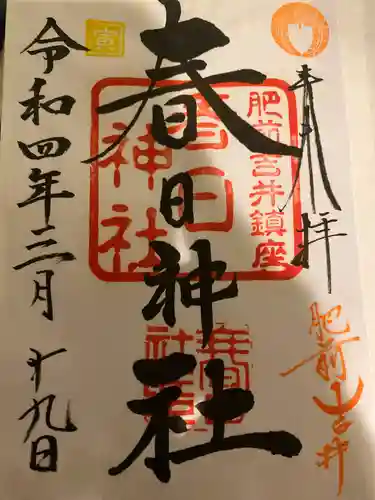 奉拝
肥前吉井
肥前吉井鎮座
春日神社
春日神社
寅
令和四年三月十九日